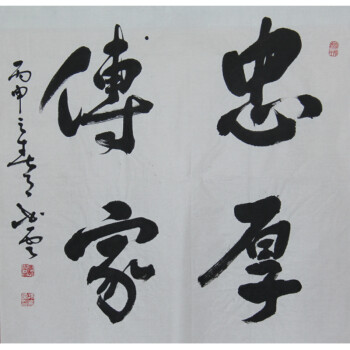 忠厚
傳家
丙申之春月